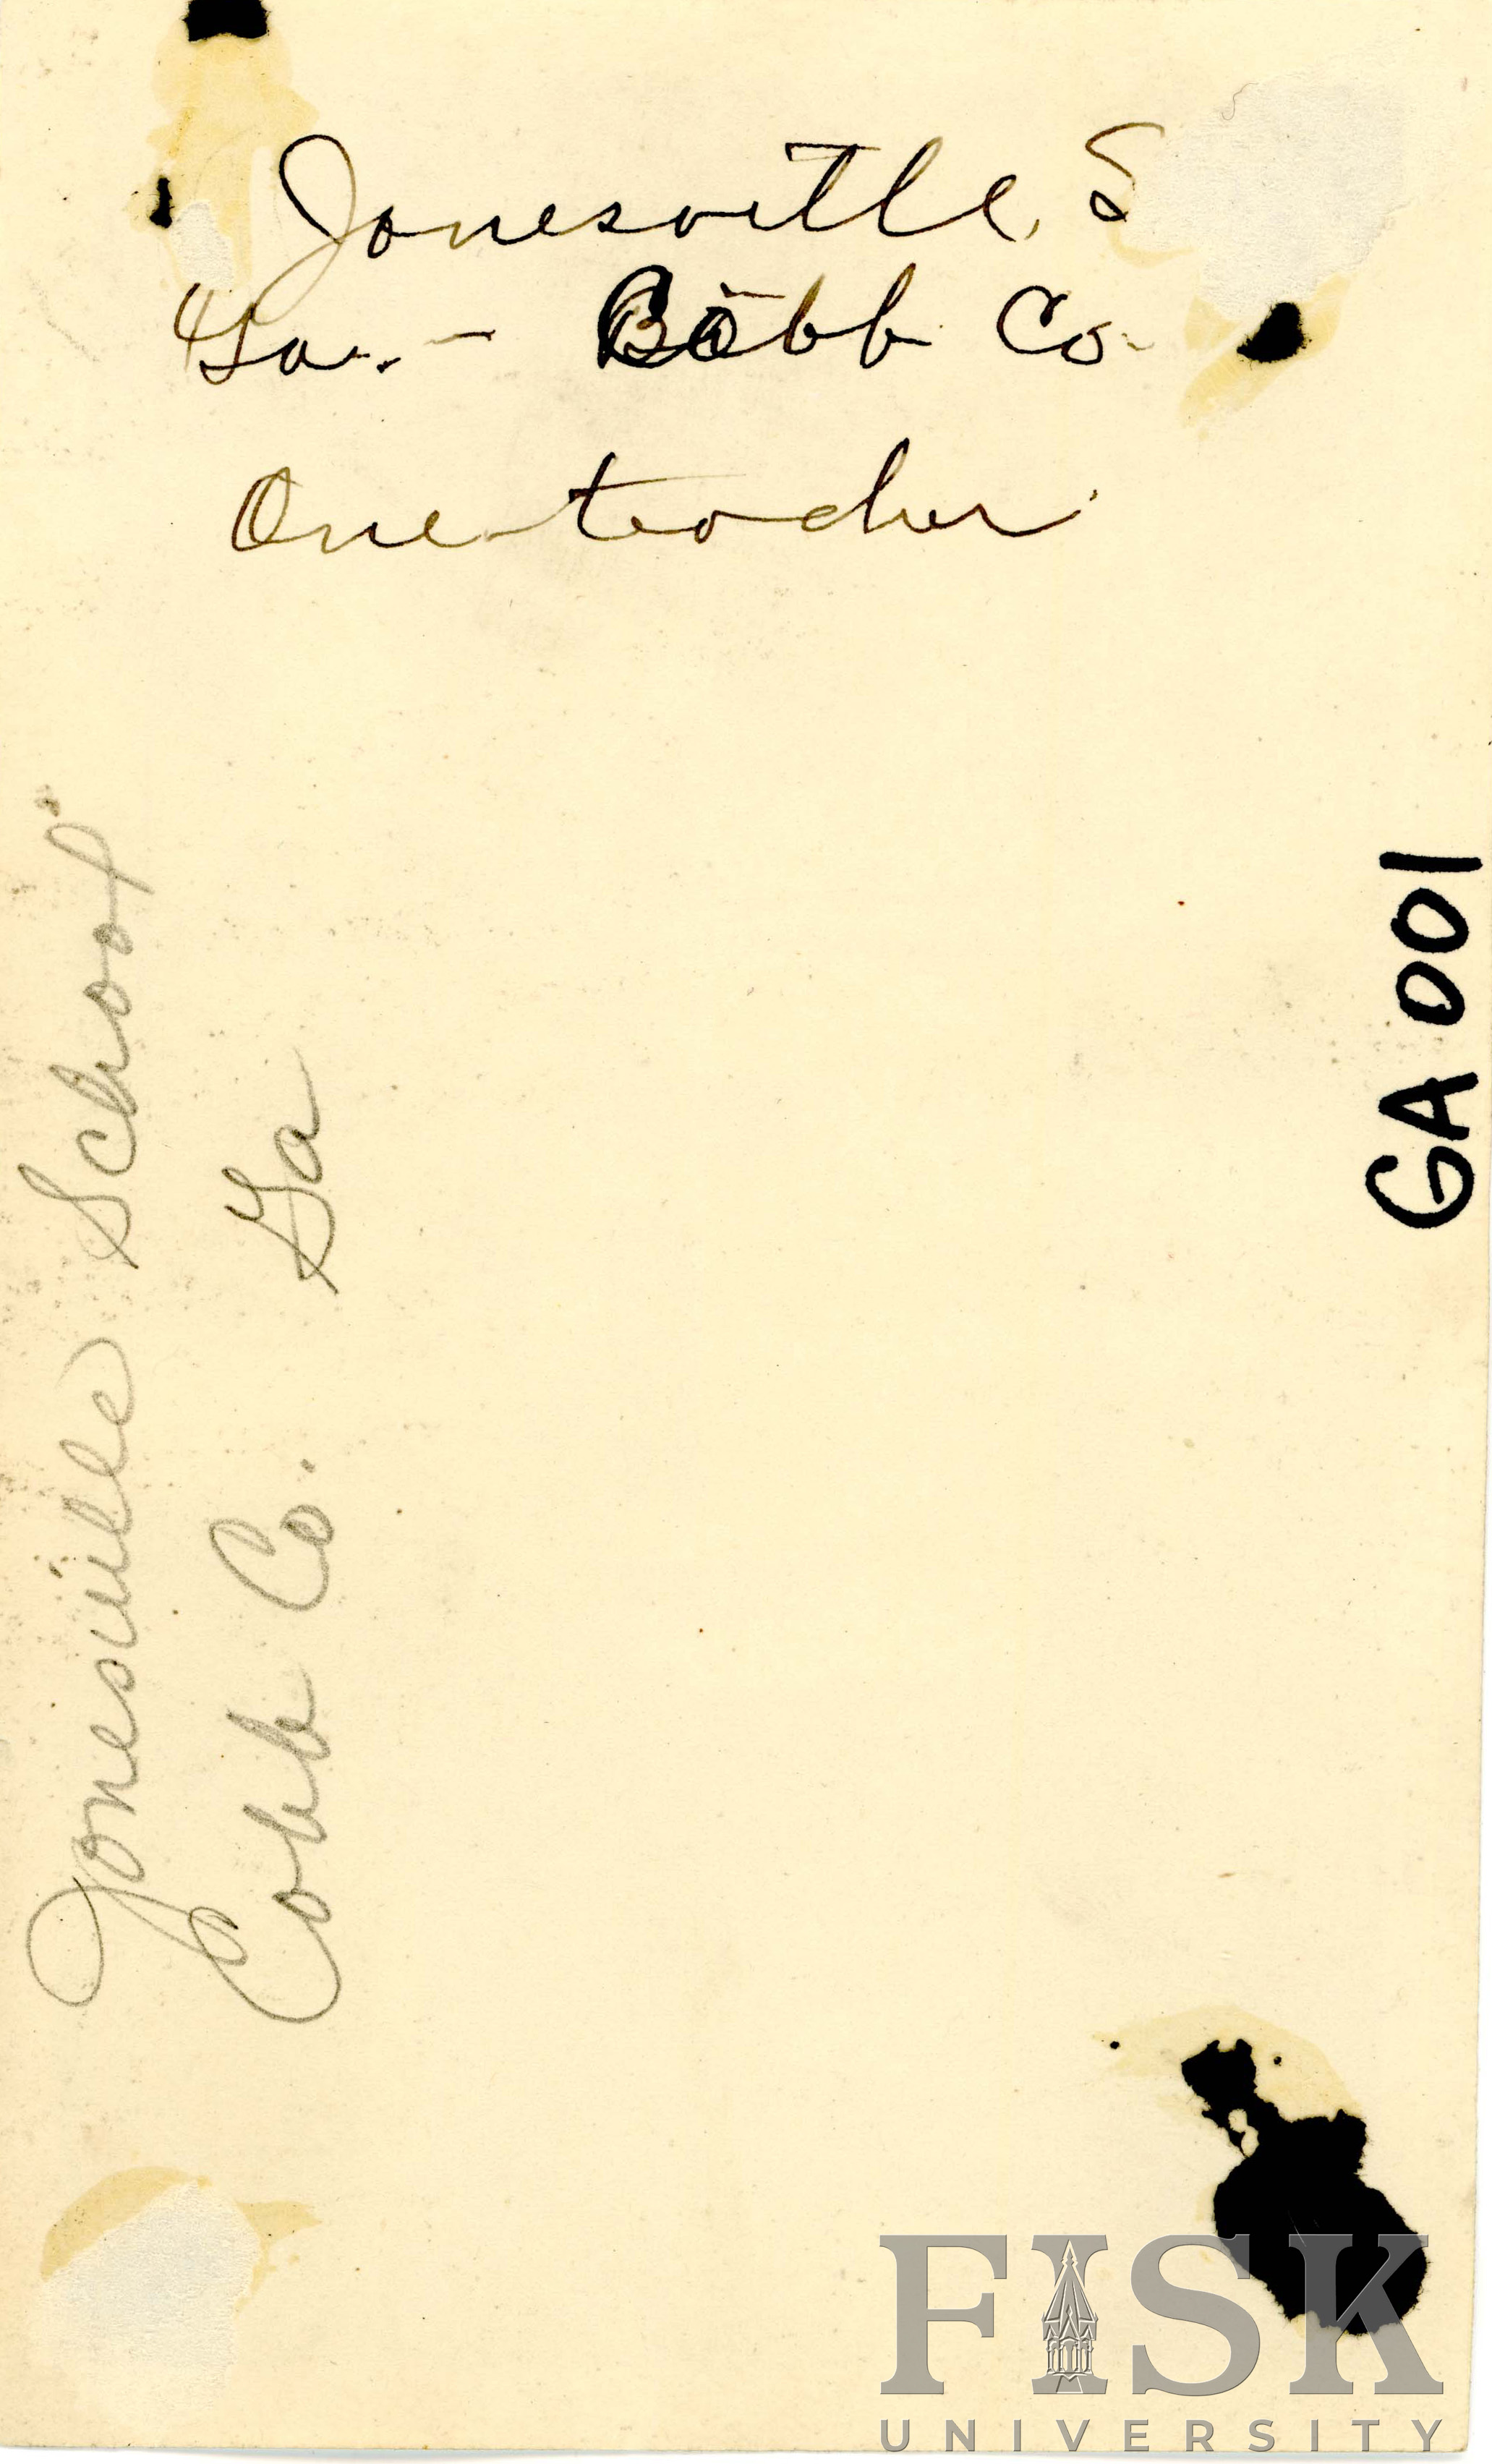 Jonesville, S
Ga. - Bibb Co.
One-teacher
Jonesville School
Cobb Co. Ga
GA 001
FISK
UNIVERSITY